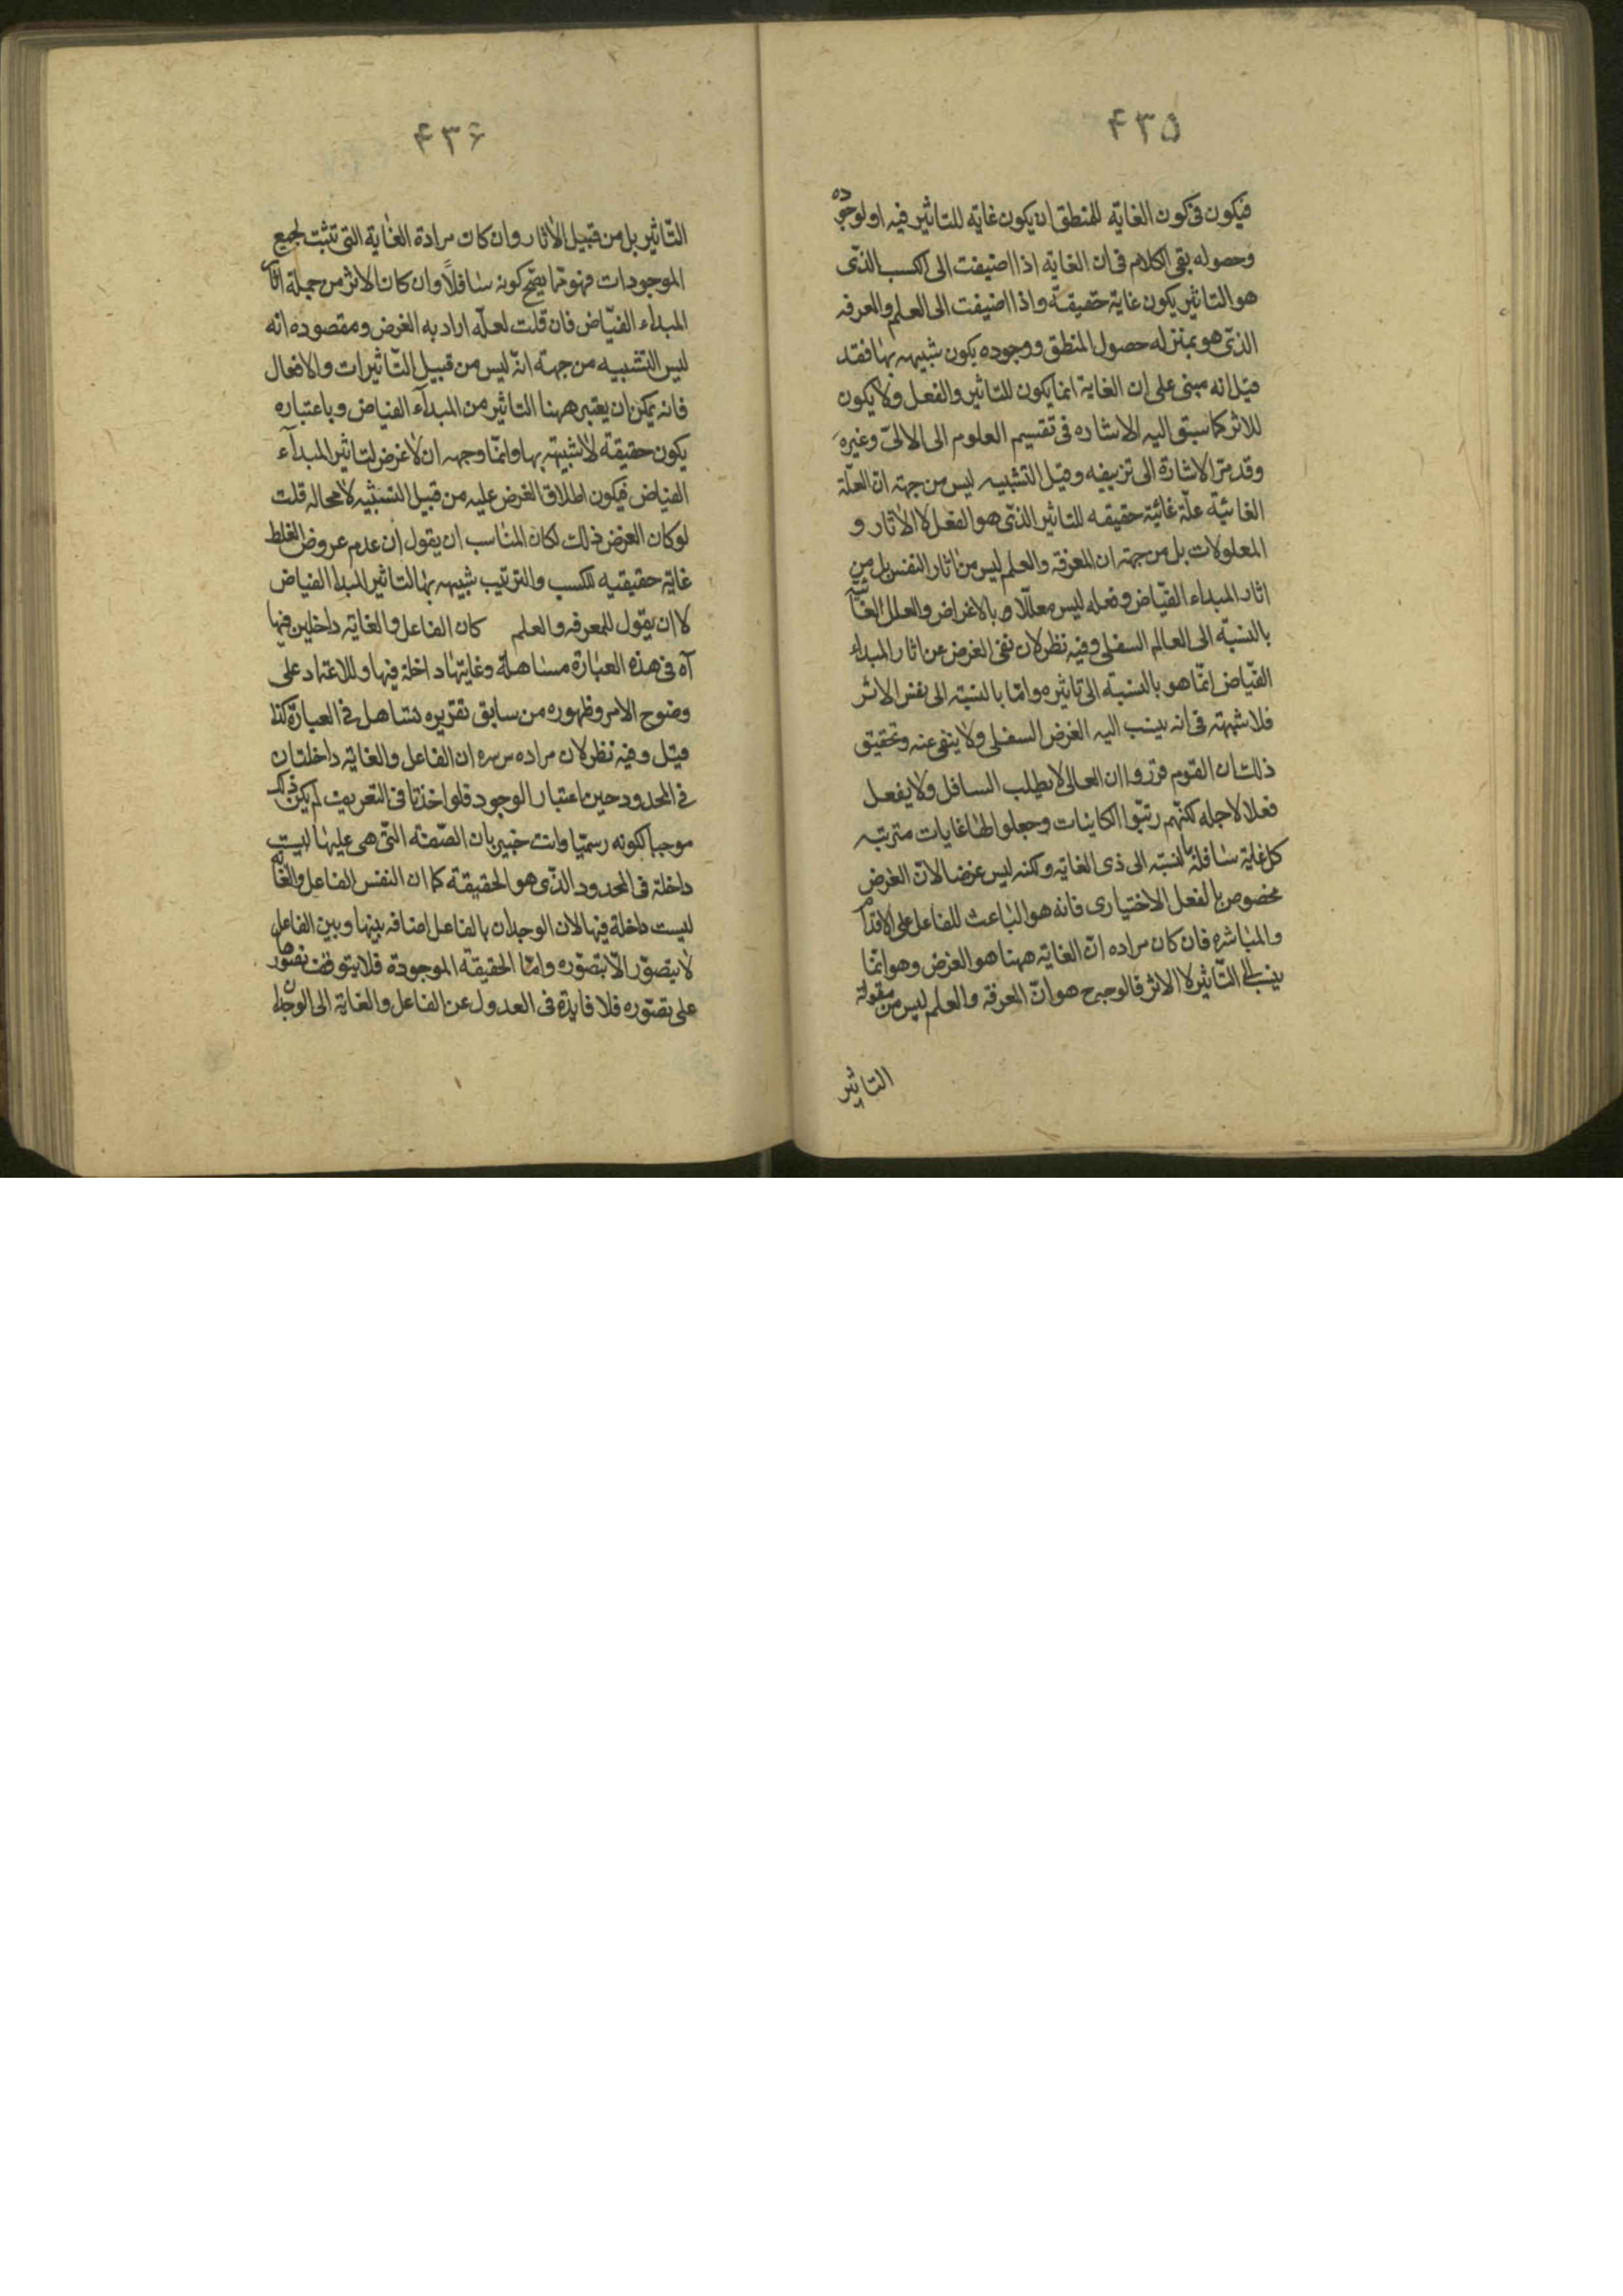 ۴۳۵
فيكون فى كون الغاية للمنطق ان يكون غاية للتاثير فيه او لوجوده
وحصوله بقى الكلام فى ان الغاية اذا اضيفت الى الكسب الذى
هو التاثير يكون غاية حقيقة واذا اضيفت الى العلم والمعرفه
الذى هو بمنزله حصول المنطق ووجوده يكون شبيهه بها فقد
قيل انه مبنى على ان الغاية انما يكون للتاثير والفعل ولا يكون
للاثر كما سبق اليه الاشاره فى تقسيم العلوم الى الالىّ وغيره
وقد مرّ الاشارة الى تزييفه وقيل التشبيه ليس من جهة انّ العلّة
الغائيّة علّة غائيّة حقيقه للتاثير الذى هو الفعل لا الاثار و
المعلولات بل من جهة ان المعرفة والعلم ليس من اثار النفس بل من
اثار المبداء الفيّاض وفعله ليس معللا بالاغراض والعلل الغائيّة
بالنسبّه الى العالم السفلى وفيه نظر لان نفى الغرض عن اثار المبداء
الفيّاض انّما هو بالنسبة الى تاثيره وامّا بالنسبة الى نفس الاثر
فلا شبهة فى انه ينسب اليه الغرض السفلى ولا ينفى عنه وتحقيق
ذلك ان القوم قرروا ان العالى لا يطلب السافل ولا يفعل
فعلا لاجله لكنّهم رتبّوا الكاينات وجعلوا لها غايات مترتبه
كل غاية سافلة بالنسبة الى ذى الغاية ولكنه ليس غرضا لانّ الغرض
مخصوص بالفعل الاختيارى فانه هو الباعث للفاعل على الاقدام
والمباشره فان كان مراده انّ الغاية ههنا هو الغرض وهو انّما
ينسب الى التّاثير لا الاثر فالوجه هو انّ المعرفة والعلم ليس من مقولة
التاثير
۴۳۶
التّاثير بل من قبيل الاثار وان كان مرادة الغاية التى تثبت لجميع
الموجودات فهو كونه سافلاً وان كان الاثر من جملة اثار
المبداء الفيّاض فان قلت لعلّه اراد به الغرض ومقصوده انه
ليس التشبيه من جهة انّه ليس من قبيل التّاثيرات والافعال
فانه يمكن ان يعتبر ههنا التاثير من المبدآء الفياض وباعتباره
يكون حقيقة لا شبيهة بها وانّما وجهه ان لا غرض لتاثير المبدآء
الفياض فيكون اطلاق الغرض عليه من قبيل التشبيه لا محاله قلت
لو كان الغرض ذلك لكان المناسب ان يقول ان عدم عروض الغلط
غاية حقيقيه للكسب والترتيب شبيهه بها لتاثير المبدا الفياض
لا ان يقول للمعرفه والعلم كان الفاعل والغاية داخلين فيها
آه فى هذه العبارة مساهلة وغايتها داخلة فيها وللاعتماد على
وضوح الامر وظهوره من سابق تقريره تساهل فى العبارة كذا
قيل وفيه نظر لان مراده سره ان الفاعل والغاية داخلتان
فى المحدود حين اعتبار الوجود فلو اخذتا فى التعريف لم يكن ذلك
موجبا لكونه رسميّا وانت خبير بان الصّفة التّى هى عليها ليست
داخلة فى المحدود الذّى هو الحقيقة كما ان النفس الفاعل والغاية
ليست داخلة فيها لان الوجدان بالفاعل اضافه بينها وبين الفاعل
لا يتصوّر الّا بتصوّره وامّا الحقيقة الموجودة فلا يتوقف تصورها
على تصوّره فلا فايدة فى العدول عن الفاعل والغاية الى الوجدان